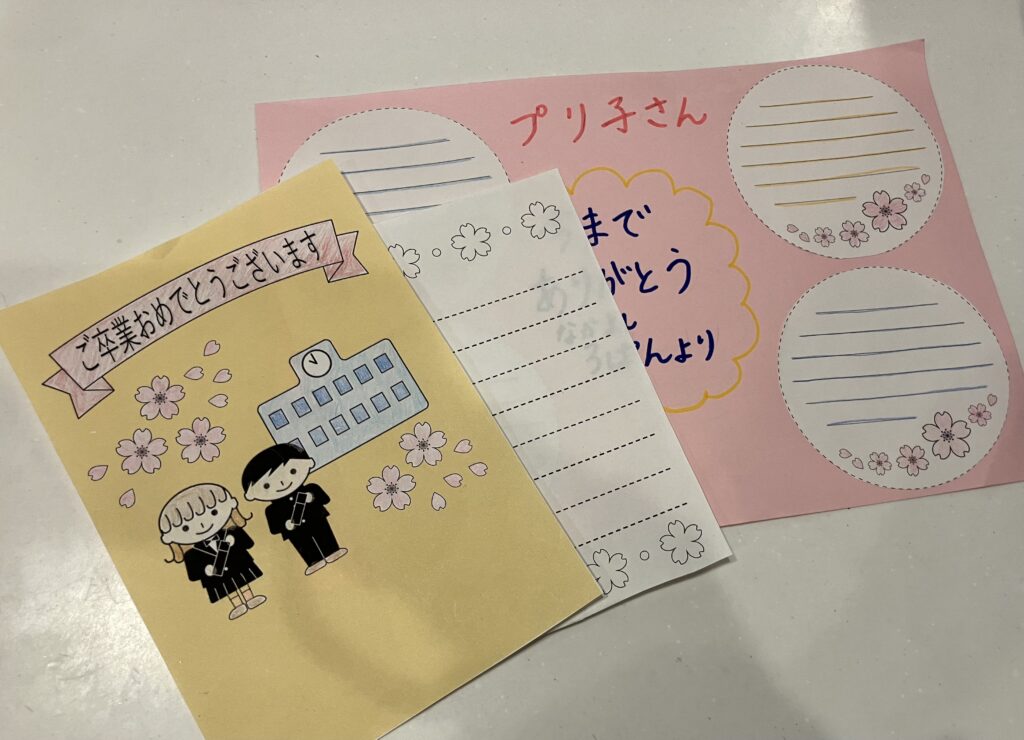 ご卒業おめでとうございます
プリ子さん
まで
がとう
んより